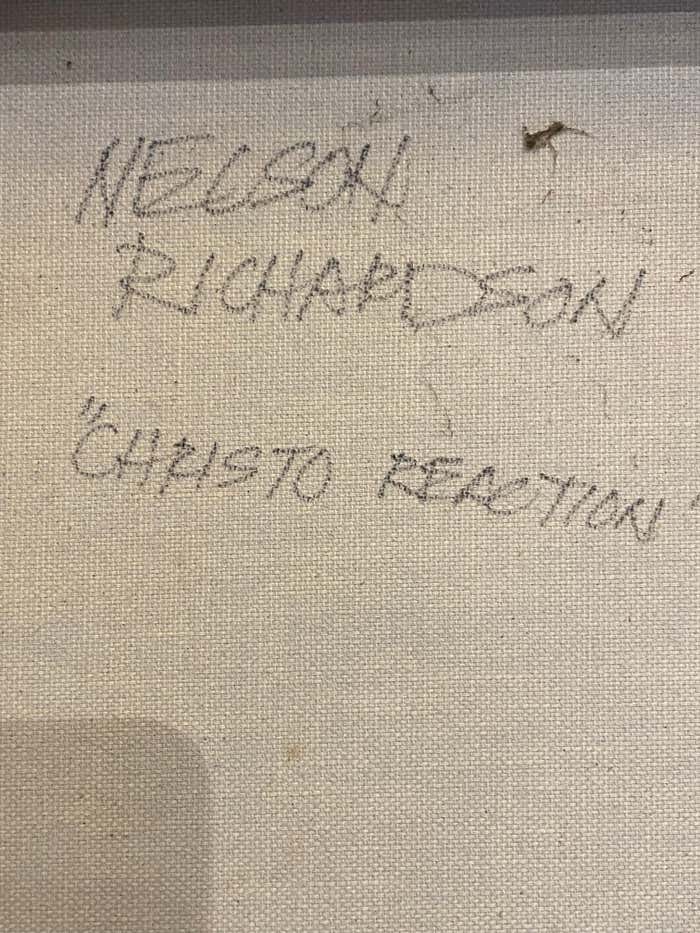 NELSON
RICHARDSON
"CHRISTO REACTION"